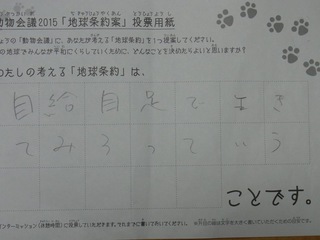 動物会議2015「地球条約案」投票用紙
の「動物会議」に、あなたが考える「地球条約」を1つ提案してください。
の地球でみんなが平和にくらしていくために、どんなことを決めたらよいと思いますか?
たしの考える「地球条約」は、
自給自足で生き
てみろっていう
ことです。